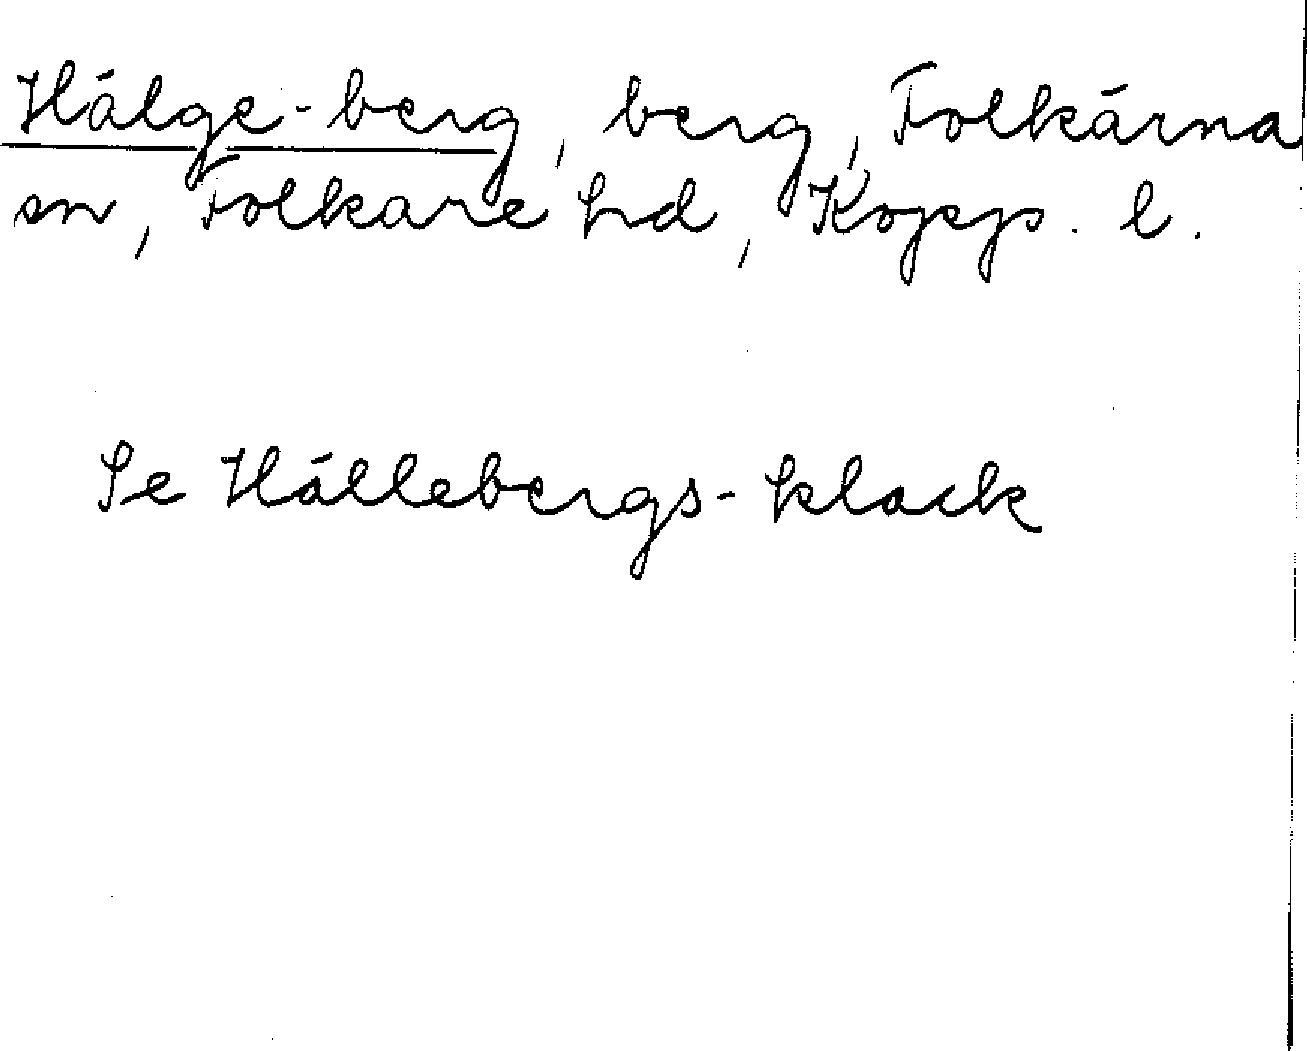 Hälge-berg, berg, Folkärna
sn, Folkare hd, Kopp. l.
Se Hällebergs-klack